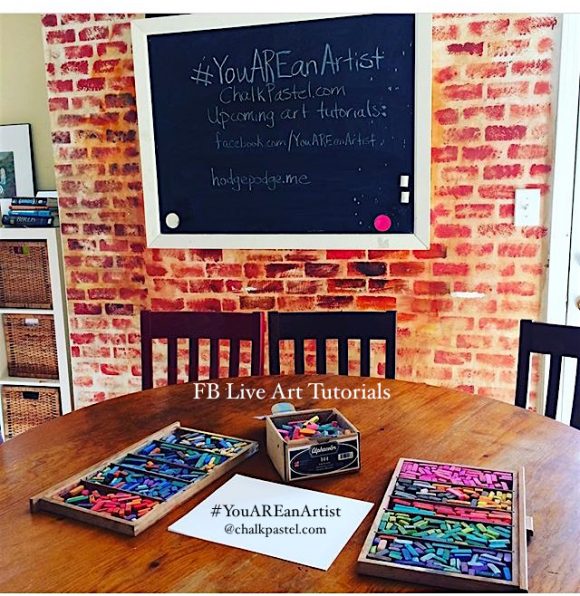 #YouAREanArtist
ChalkPastel.com
Upcoming art tutorials:
facebook.com/YouAREanArtist
hodgepodge.me
FB Live Art Tutorials
Alphacolor
144
#YouAREanArtist
@chalkpastel.com